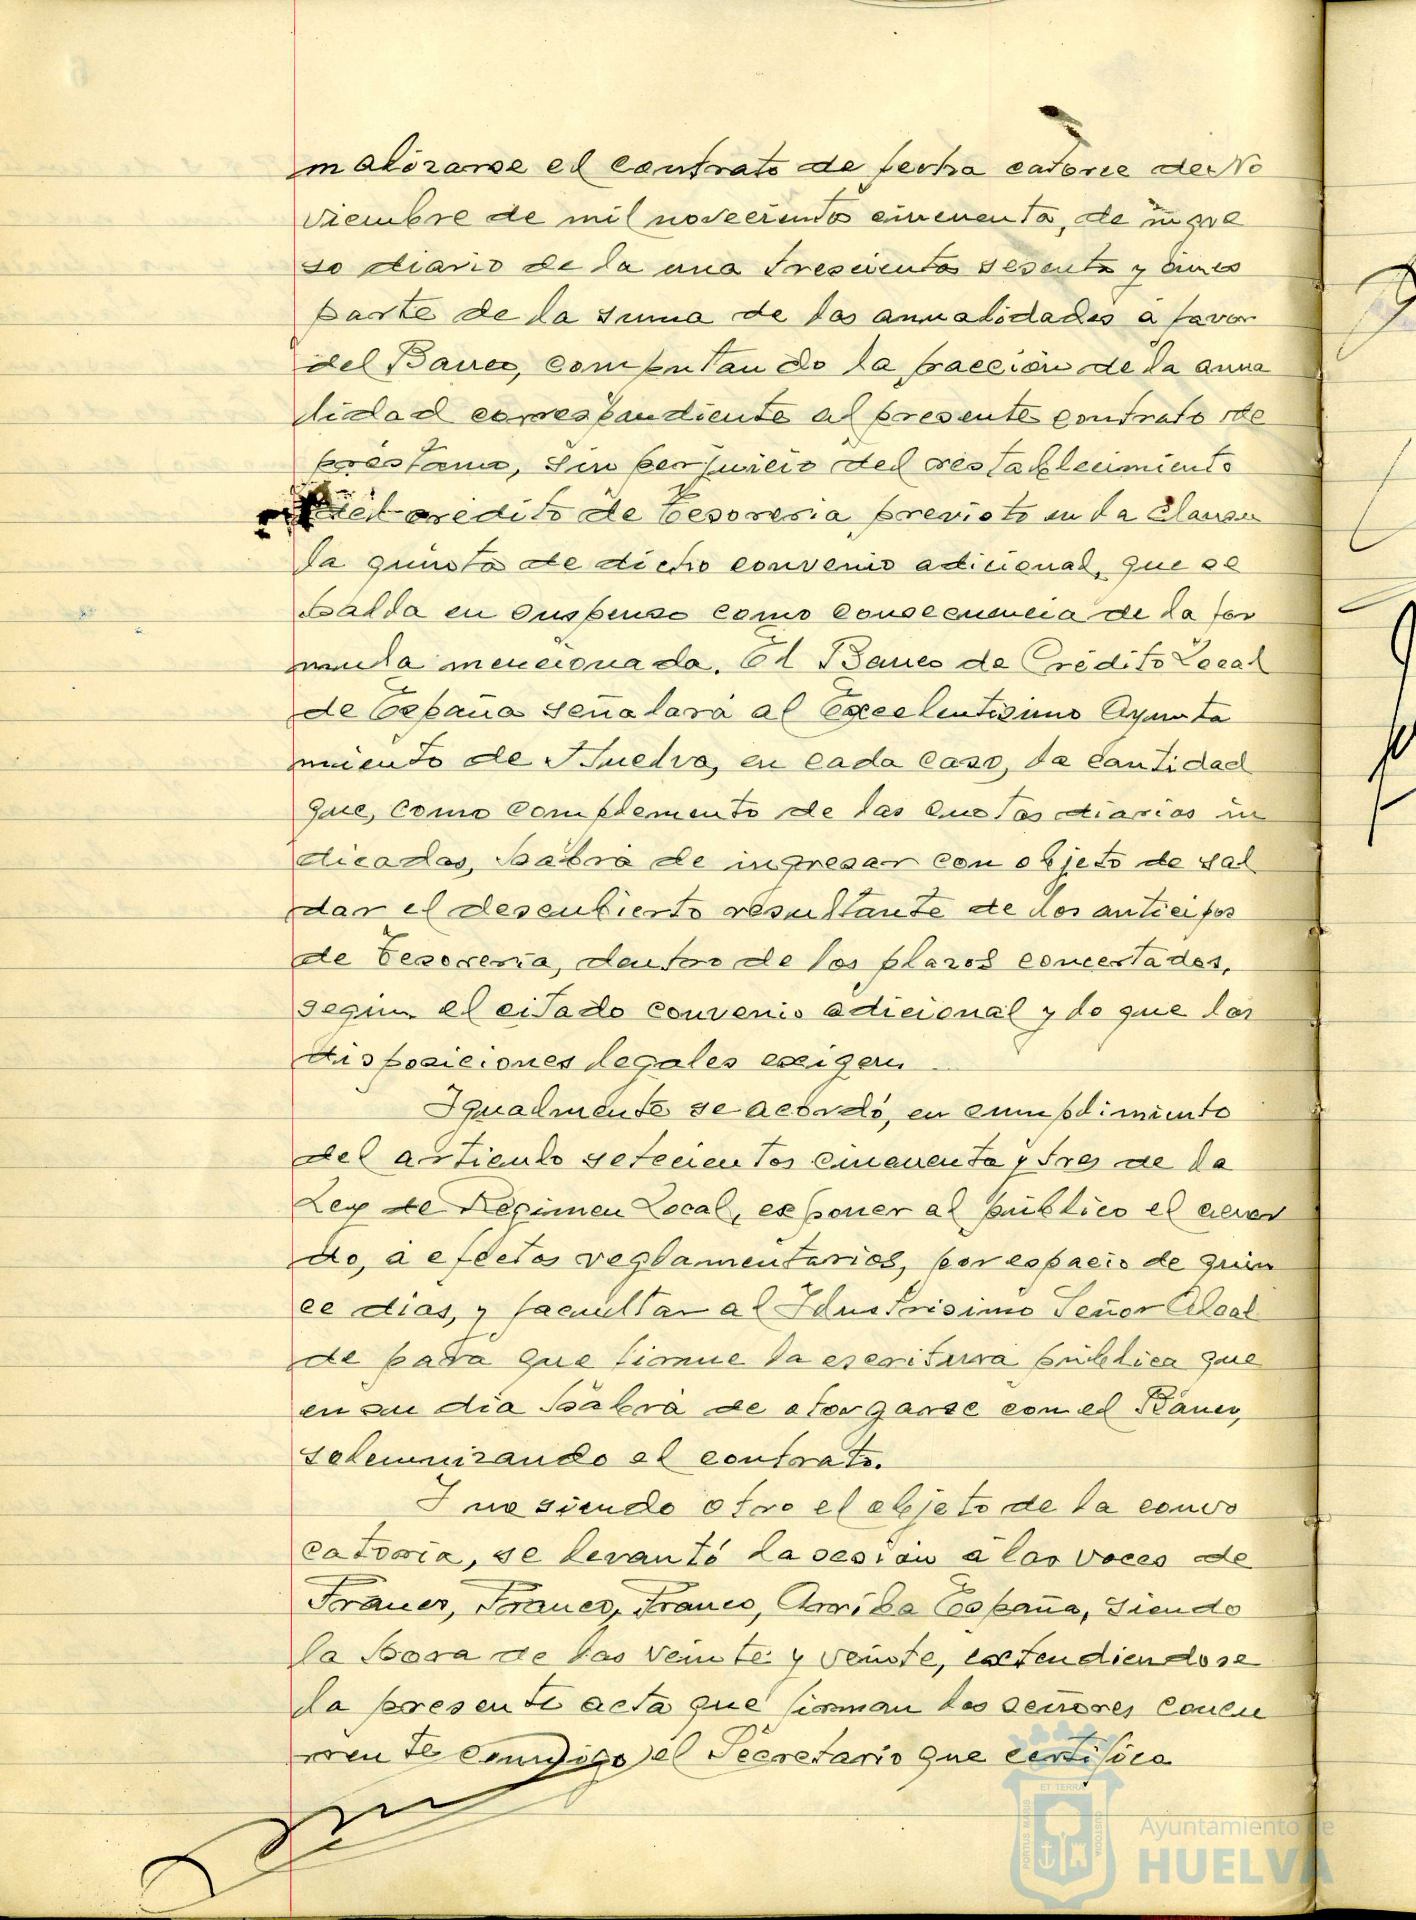 malizarse el contrato de fecha catorce de No
viembre de mil novecientos cincuenta, de ingre
so diario de la una trescientos sesenta y cinco
parte de la suma de las anualidades a favor
del Banco, computando la fracción de la anua
lidad correspondiente al presente contrato de
préstamo, sin perjuicio del restablecimiento
del crédito de Tesorería previsto en la Cláusu
la quinta de dicho convenio adicional, que se
halla en suspenso como consecuencia de la for
mula mencionada. El Banco de Crédito Local
de España señalará al Excelentísimo Ayunta
miento de Huelva, en cada caso, la cantidad
que, como complemento de las cuotas diarias in
dicadas, habrá de ingresar con objeto de sal
dar el descubierto resultante de los anticipos
de Tesorería, dentro de los plazos concertados,
según el citado convenio adicional y lo que las
disposiciones legales exigen.
Igualmente se acordó, en cumplimiento
del artículo setecientos cincuenta y tres de la
Ley de Régimen Local, exponer al público el acuer
do, a efectos reglamentarios, por espacio de quin
ce días, y facultar al Ilustrísimo Señor Alcal
de para que firme la escritura pública que
en su día habrá de otorgarse con el Banco,
solemnizando el contrato.
Y no siendo otro el objeto de la convo
catoria, se levantó la sesión a las voces de
Franco, Franco, Franco, Arriba España, siendo
la hora de las veinte y veinte, extendiendose
la presente acta que firman los señores concu
rrente conmigo el Secretario que certifica
ET TERRA
PORTUS MARIS
CUSTODIA
Ayuntamiento de
HUELVA